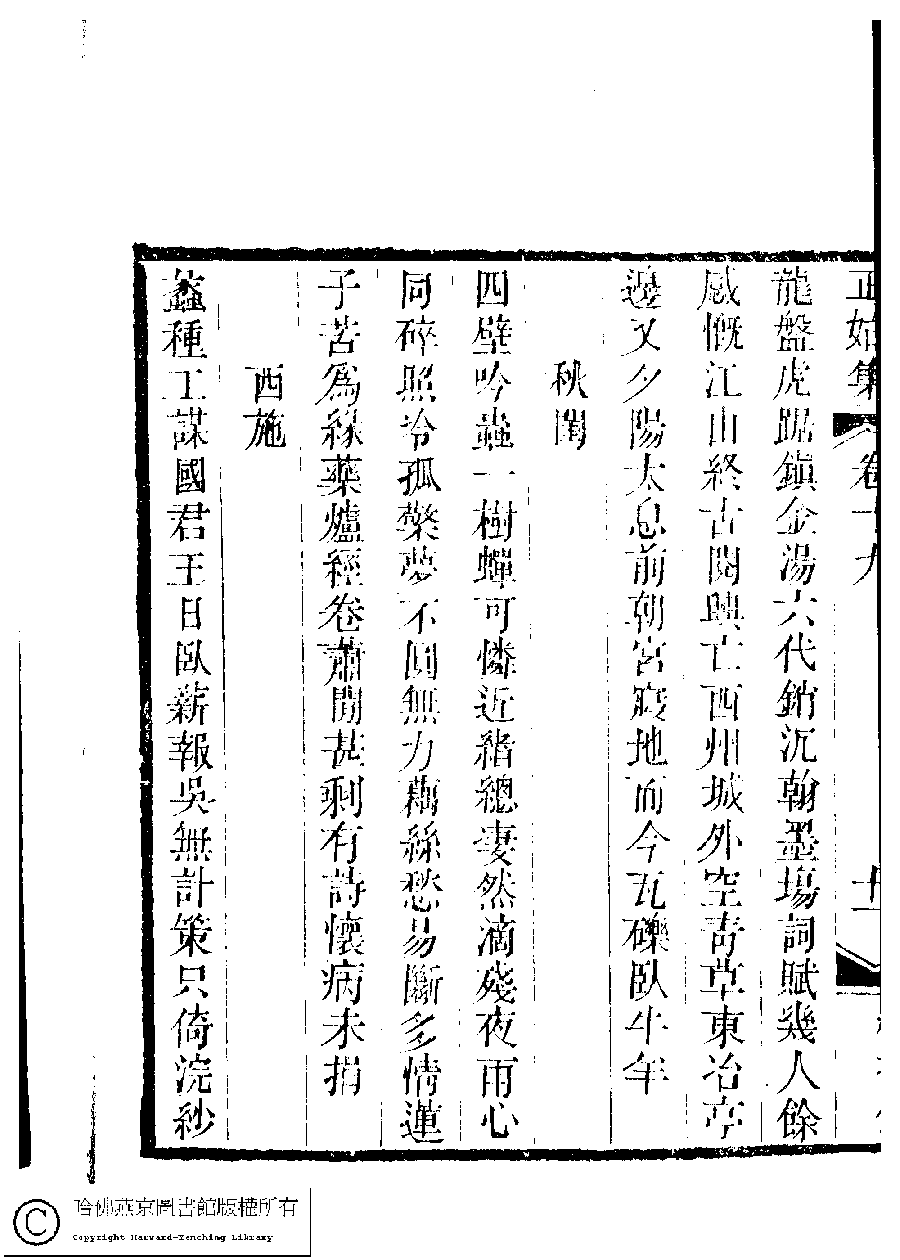 正始集 卷十九 十一
龍盤虎踞鎮金湯六代銷沉翰墨塲詞賦幾人餘
感慨江山終古閱興亡西州城外空靑草東冶亭
邊又夕陽太息前朝宮寢地而今瓦礫臥牛羊
秋閨
四壁吟蟲一樹蟬可憐近緒總凄然滴殘夜雨心
同碎照冷孤檠夢不圓無力藕絲愁易斷多情蓮
子苦爲緣藥爐經卷蕭閒甚剩有詩懷病未捐
西施
蠡種工謀國君王日臥薪報吳無計策只倚浣紗
哈佛燕京圖書館版權所有
Copyright Harvard-Yenching Library